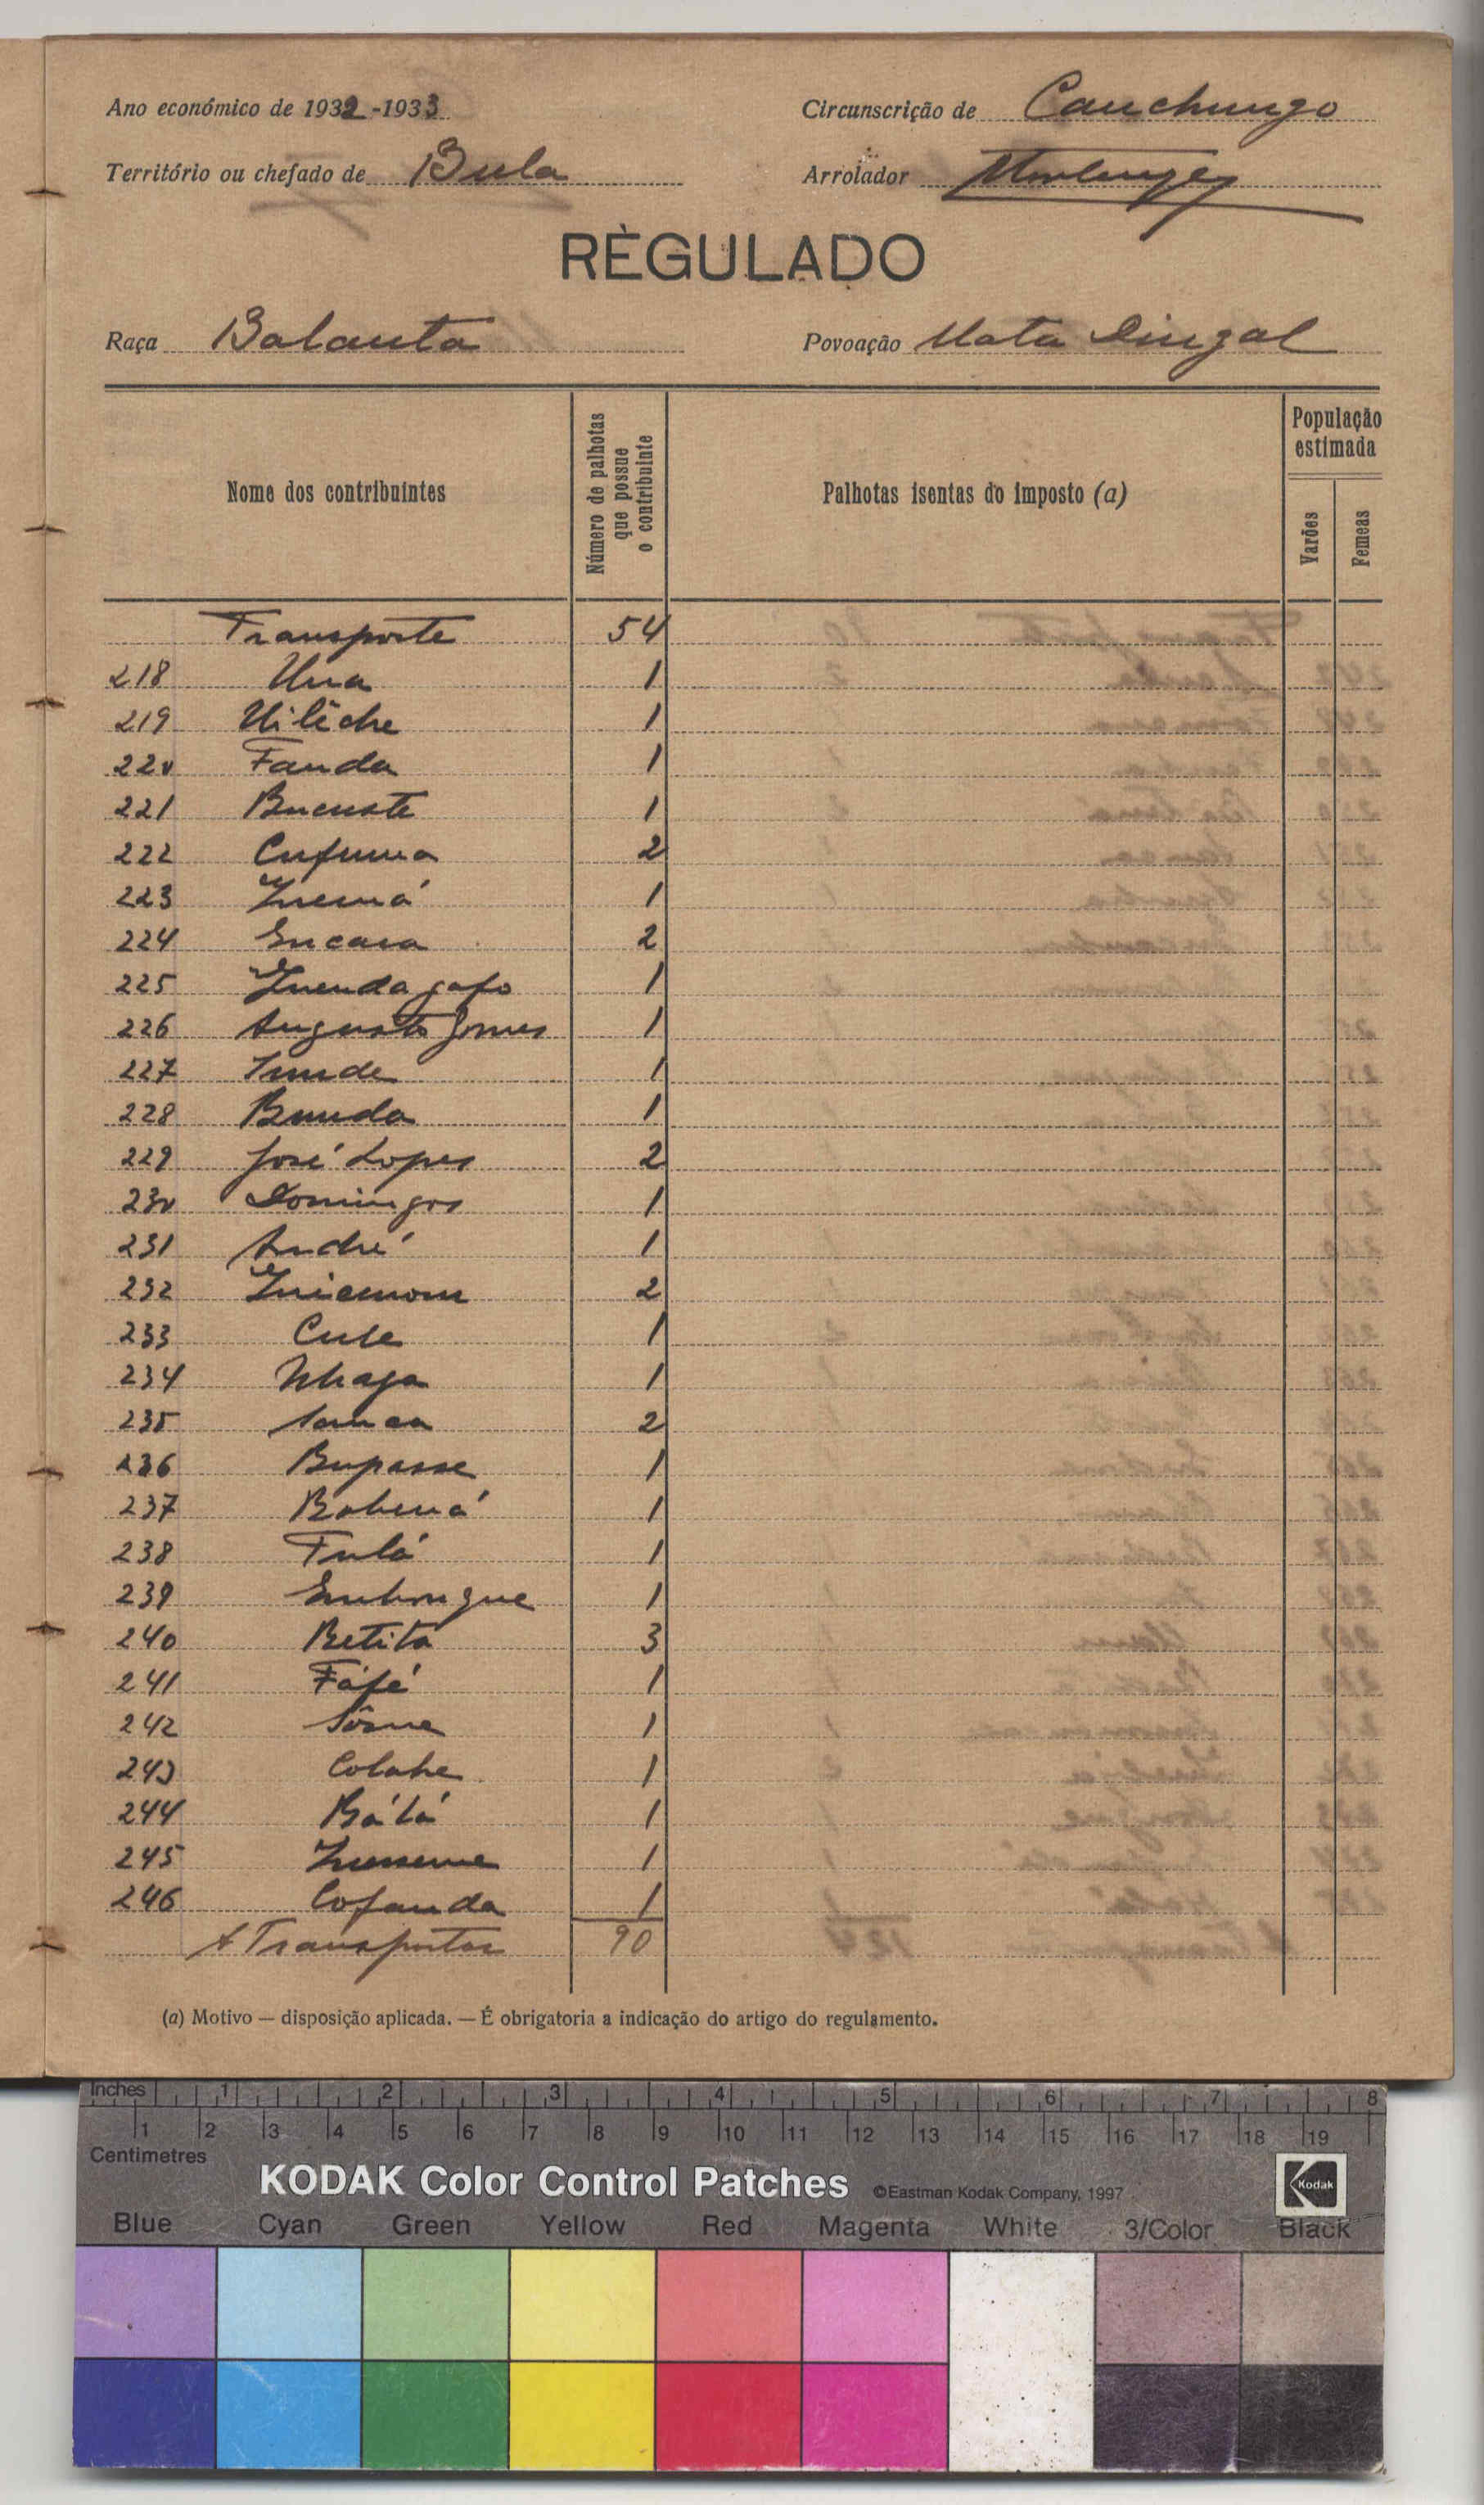 Ano económico de 1932-1933
Circunscrição de Canchungo
Território ou chefado de Bula
Arrolador
RÈGULADO
Raça Balanta
Povoação Mata Dingal
Nome dos contribuintes
Número de palhotas que possue o contribuinte
Palhotas isentas do imposto (a)
População estimada
Varões
Femeas
Transporte 54
218 Una 1
219 1
220 Fanda 1
221 Bucuste 1
222 Cufuma 2
223 1
224 Encara 2
225 1
226 Augusto Gomes 1
227 1
228 Bunda 1
229 José Lopes 2
230 Domingos 1
231 André 1
232 2
233 Cule 1
234 Nhaga 1
235 Sanca 2
236 Bupasse 1
237 1
238 Fulá 1
239 1
240 Betita 3
241 Fáfé 1
242 Sôme 1
243 1
244 Bálá 1
245 1
246 Cofanda 1
A Transportar 90
(a) Motivo — disposição aplicada. — É obrigatoria a indicação do artigo do regulamento.
Inches 1 2 3 4 5 6 7 8
1 2 3 4 5 6 7 8 9 10 11 12 13 14 15 16 17 18 19
Centimetres
KODAK Color Control Patches ©Eastman Kodak Company, 1997 Kodak
Blue Cyan Green Yellow Red Magenta White 3/Color Black